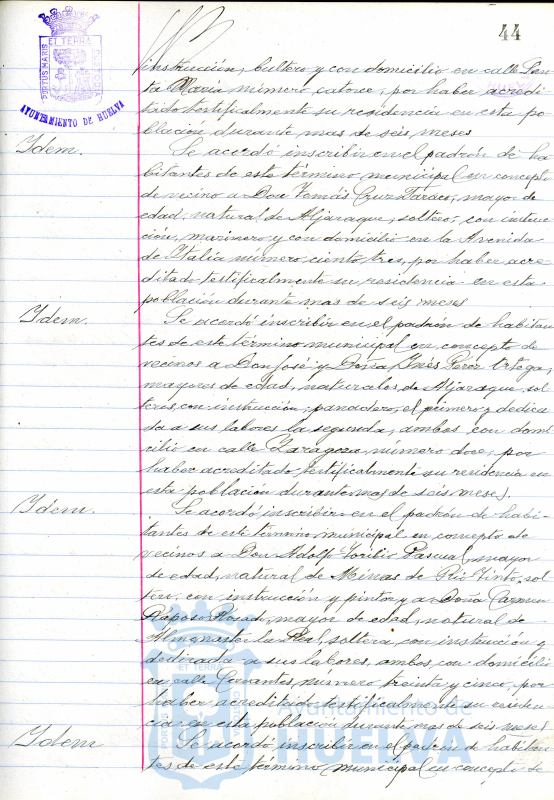 44
PORTUS MARIS ET TERRÆ CUSTODIA
AYUNTAMIENTO DE HUELVA
instrucción, bultero y con domicilio en calle San-
ta Maria número catorce, por haber acredi-
tado testificalmente su residencia en esta po-
blación durante mas de seis meses
Idem. Se acordó inscribir en el padrón de ha-
bitantes de este término municipal en concepto
de vecino a Don Tomás Cruz, mayor de
edad, natural de Aljaraque, soltero, con instruc-
ción, marinero y con domicilio en la Avenida
de Italia número ciento tres, por haber acre-
ditado testificalmente su residencia en esta
población durante mas de seis meses
Idem. Se acordó inscribir en el padrón de habitan-
tes de este término municipal en concepto de
vecinos a Don José y Doña Inés Perez Ortega,
mayores de edad, naturales de Aljaraque, sol-
teros, con instrucción, panadero, el primero y dedica-
da a sus labores la segunda, ambos con domi-
cilio en calle Zaragoza, número doce, por
haber acreditado testificalmente su residencia en
esta población durante mas de seis meses.
Idem. Se acordó inscribir en el padrón de habi-
tantes de este término municipal en concepto de
vecinos a Don Adolfo Toribio Pascual, mayor
de edad, natural de Minas de Rio Tinto, sol-
tero, con instrucción y pintor y a Doña Carmen
Raposo, mayor de edad, natural de
Almonaster la Real, soltera, con instrucción y
dedicada a sus labores, ambos, con domicilio
en calle Cervantes, número treinta y cinco, por
haber acreditado testificalmente su residen-
cia en esta población durante mas de seis meses
Idem Se acordó inscribir en el padrón de habitan-
tes de este término municipal en concepto de
Ayuntamiento de
HUELVA